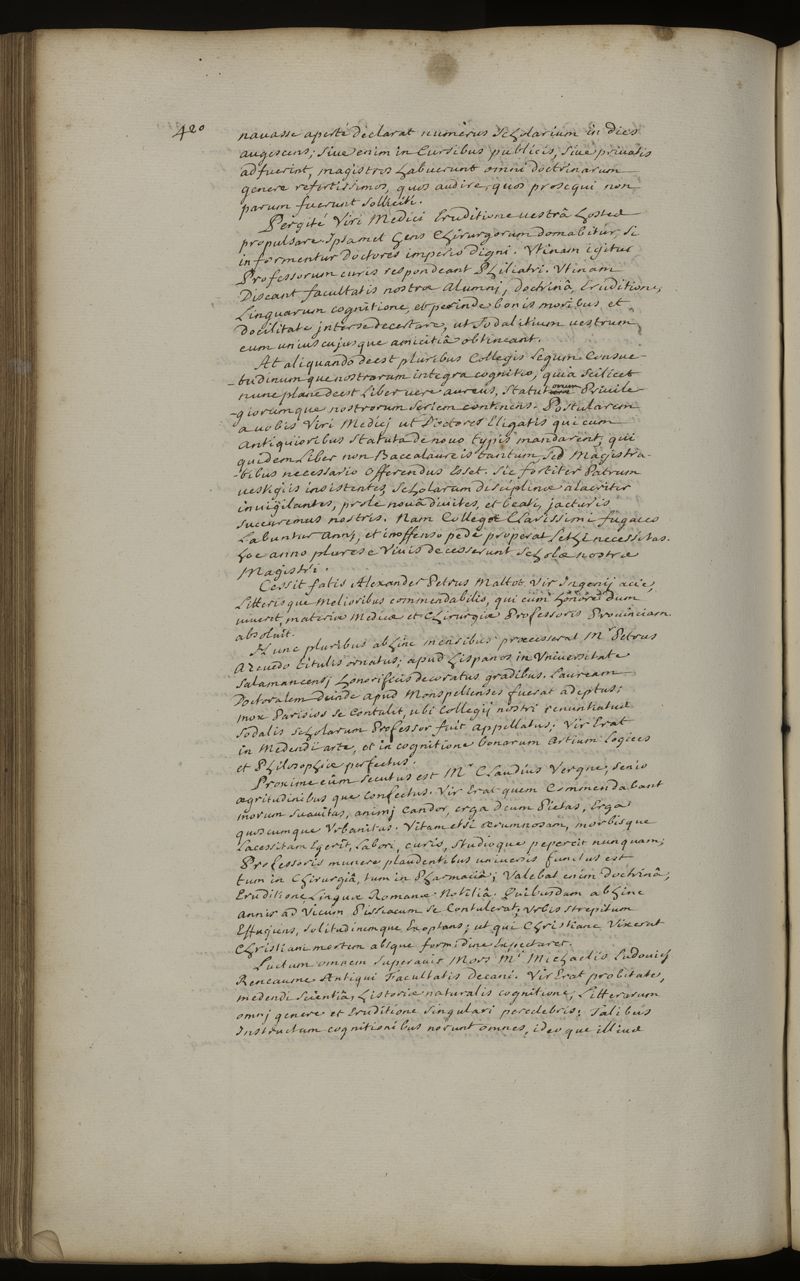 420
navasse aperté declarat numerus scholarium in dies
augescens; sive enim in Cursibus publicis, sive privatis
adfuerint, magistros habuerunt omni doctrinarum
genere refertissimos, quos audire, quos prosequi non
parum fuerunt solliciti.
Pergité Viri Medici Eruditione vestrâ hostes
propulsare. Ipsamet Gens Chirurgorum domabitur, si
informentur Doctores imperio digni. Utinam igitur
Professorum curis respondeant Philiatri. Utinam
Discant facultatis nostræ Alumnj, doctrinâ, Eruditione,
Linguarum cognitione, et perinde bonis moribus, et
docilitate inter se decertare, ut sodalitium vestrum,
cum uniuscujusque amicitiâ obtineant.
At aliquando deest pluribus Collegis legum Consue-
-tudinumque nostrarum integra cognitio, quia scilicet
nunc plane deest Liber vere aureus, statutorum Privile-
-giorumque nostrorum seriem continens. Postularem
a vobis Viri Medicj ut Doctores Eligatis qui cum
Antiquioribus statuta de novo typis mandarent, qui
quidem Liber non Baccalaureis tantum, sed Magistra-
-tibus necessario Offerendus Esset. Sic fortiter Patrum
vestigiis insistentes, scholarum disciplinæ alacriter
invigilantes, prole novâ divites, et beati, jacturis
succurremus nostris. Nam Collegæ Clarissimi fugaces
Labuntur Annj, et inoffenso pede properat lethi necessitas.
hoc anno plures e Vivis decesserunt scholæ nostræ
Magistri.
Cessit fatis Alexander Petrus Mattot, Vir Ingenij acie,
Litterisque Melioribus commendabilis, qui cum
vixerit, materiæ Medicæ et Chirurgiæ Professoris Provinciam
absoluit.
Hunc pluribus abhinc mensibus præcesserat Mr Petrus
Azevedo titulis ornatus; apud hispanos in Universitate
Salamancensj honorificis decoratus gradibus. Lauream
Doctoralem deinde apud Monspellenses fuerat adeptus;
mox Parisios se Contulit, ubi Collegij nostri renuntiatus
sodalis scholarum Professor fuit appellatus; Vir Erat
in Medendi arte, et in cognitione bonarum Artium Logices
et Philosophiæ perfectus.
Proxime eum secutus est Mr Claudius Verque, senio
ægritudinibus que Confectus. Vir Erat quem Commendabant
morum suavitas, animj Candor, erga Deum Pietas, Erga
quoscumque Urbanitas. Vitam etsi ærumnosam, morbisque
Lacessitam Egerit, Labori, curis, studioque pepercit nunquam;
Professoris munere plaudentibus universis functus est
tum in Chirurgiâ, tum in Pharmaciâ; Valebat enim Doctrinâ,
Eruditione Linguæ Romanæ Notitiâ. Quibusdam abhinc
annis ad Vicum Pissiacum se Contulerat, Urbis strepitum
Effugiens, solitudinemque Exoptans; ut qui Christiane Vixerat
Christianj mortem absque formidine Expectaret.
Luctum omnem superavit Mors Mi Michaelis Ludovicj
Reneaume Antiqui Facultatis Decani. Vir Erat probitate,
medendi scientiâ, historiæ naturalis cognitione, Litterarum
omnj genere et Eruditione singulari percelebris. Talibus
Instructum cognitionibus norunt omnes, ideoque illius